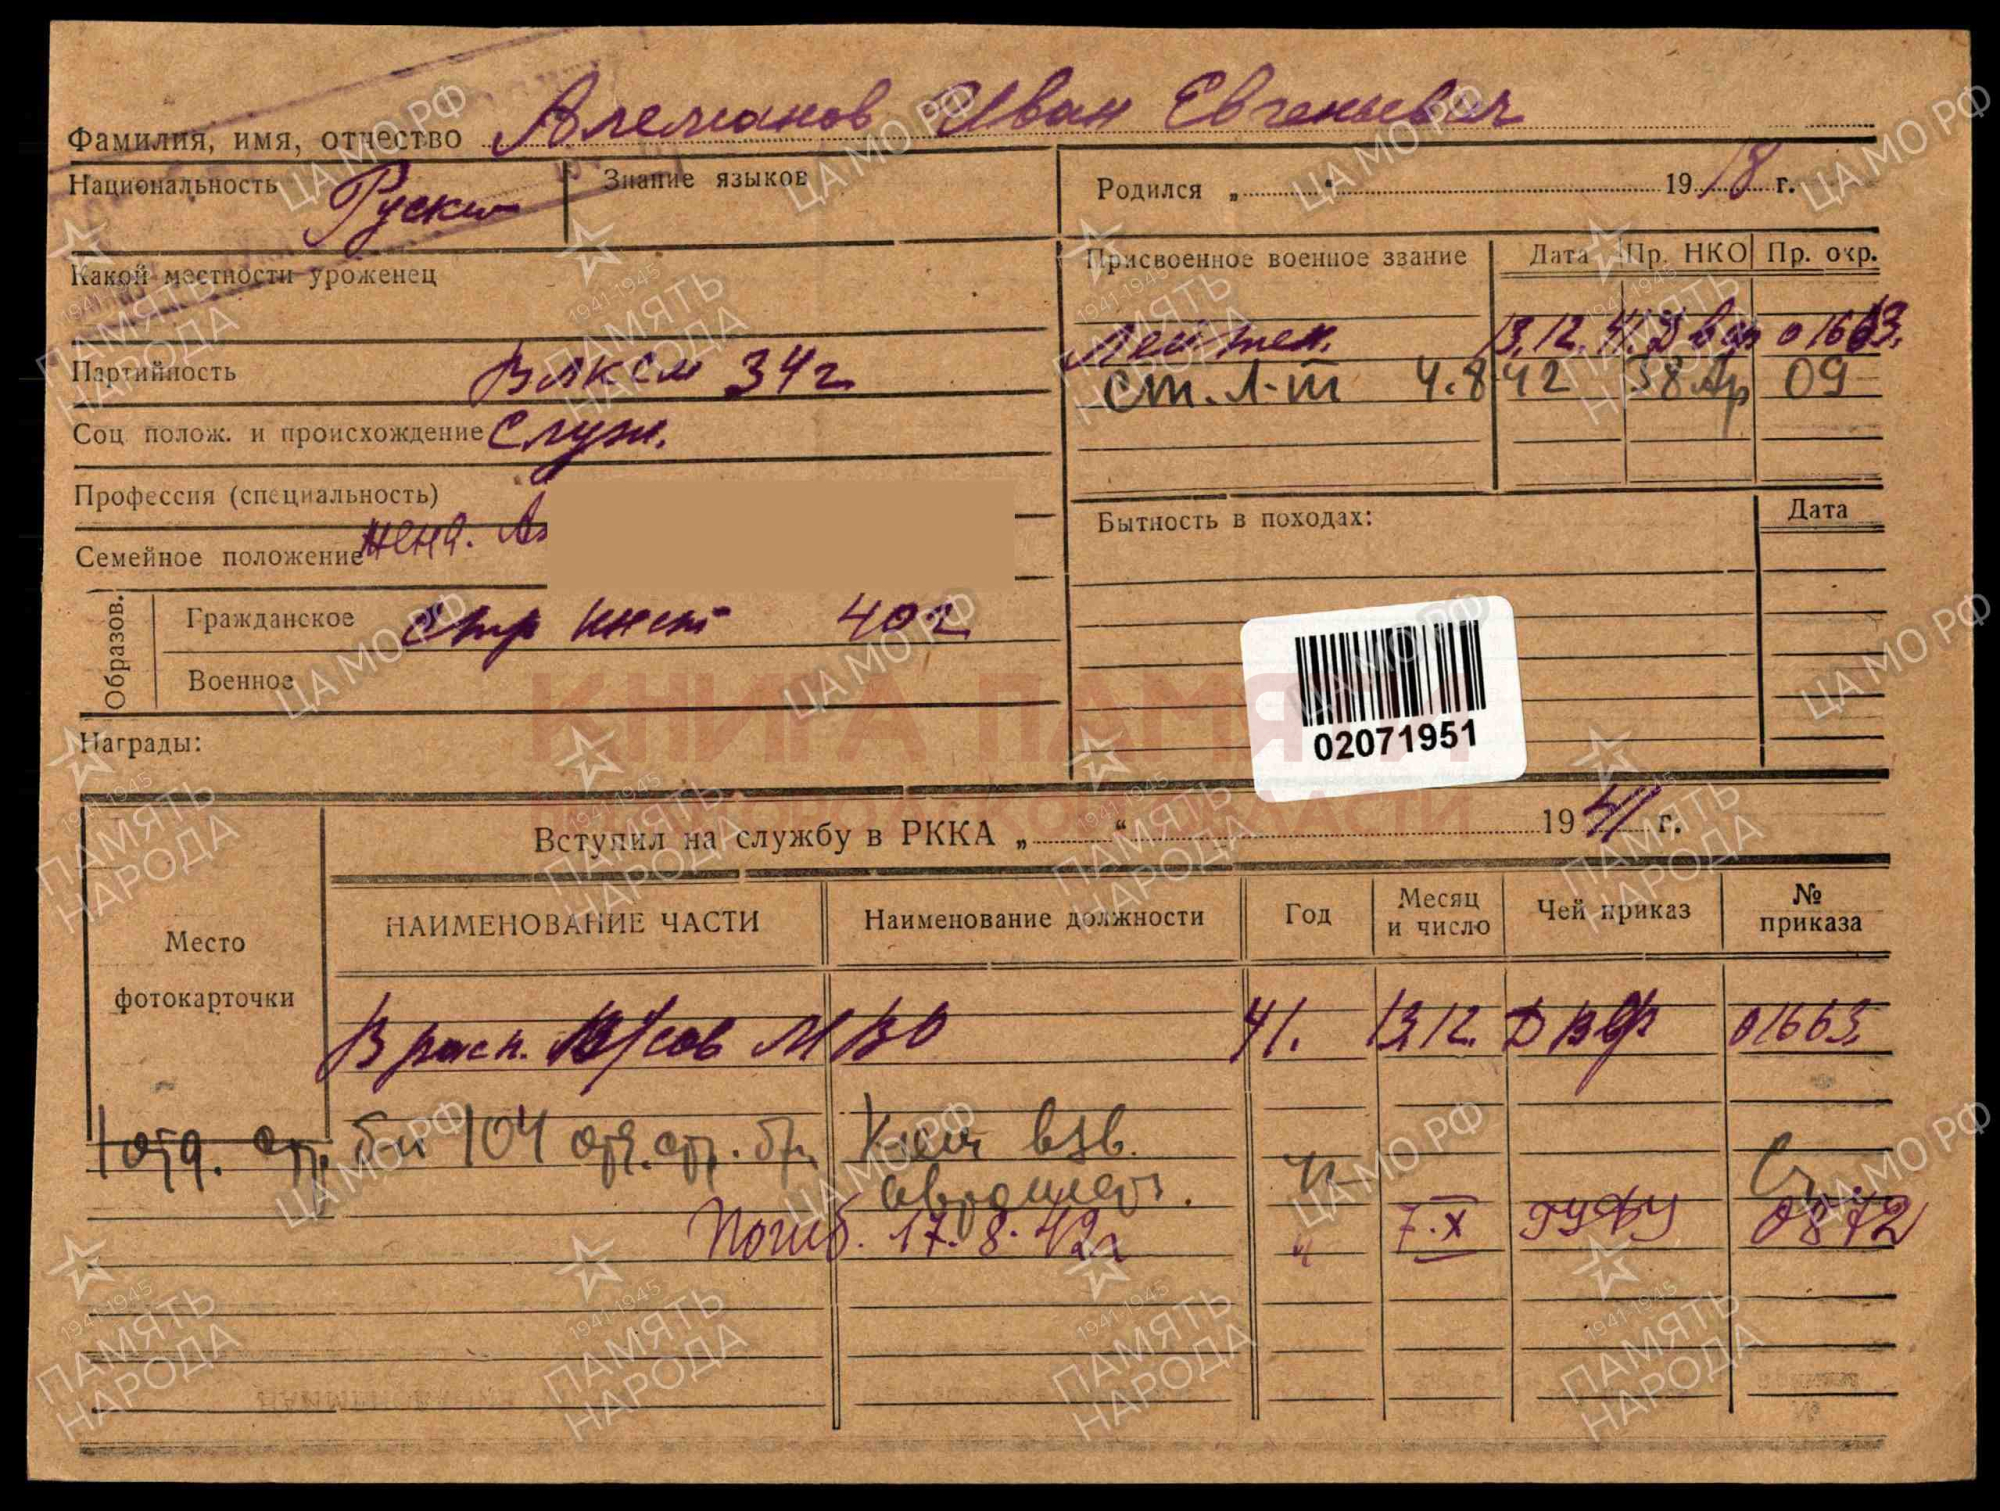 Фамилия, имя, отчество Алеманов Иван Евгеньевич
Национальность Руский
Знание языков
Родился „ “ 1918 г.
Какой местности уроженец
Присвоенное военное звание Дата Пр. НКО Пр. окр.
Лейтен. 13.12.41. Двф 01663.
Партийность Влксм 34г
ст. л-т 4.8.42 38 Ар 09
Соц полож. и происхождение Служ.
Профессия (специальность)
Бытность в походах: Дата
Семейное положение жена.
Образов.
Гражданское Стр инст 40г
Военное
Награды:
02071951
КНИГА ПАМЯТИ
Вступил на службу в РККА „ “ 1941 г.
Место фотокарточки
НАИМЕНОВАНИЕ ЧАСТИ Наименование должности Год Месяц и число Чей приказ № приказа
В расп. МВО 41. 13.12. ДВФ 01663.
1 отд. стр. б-н 104 отд. стр. бр. Ком взв.
автомат.
Погиб. 17.8.42г 7.X ГУФУ 0872
ЦА МО РФ
1941-1945
ПАМЯТЬ НАРОДА